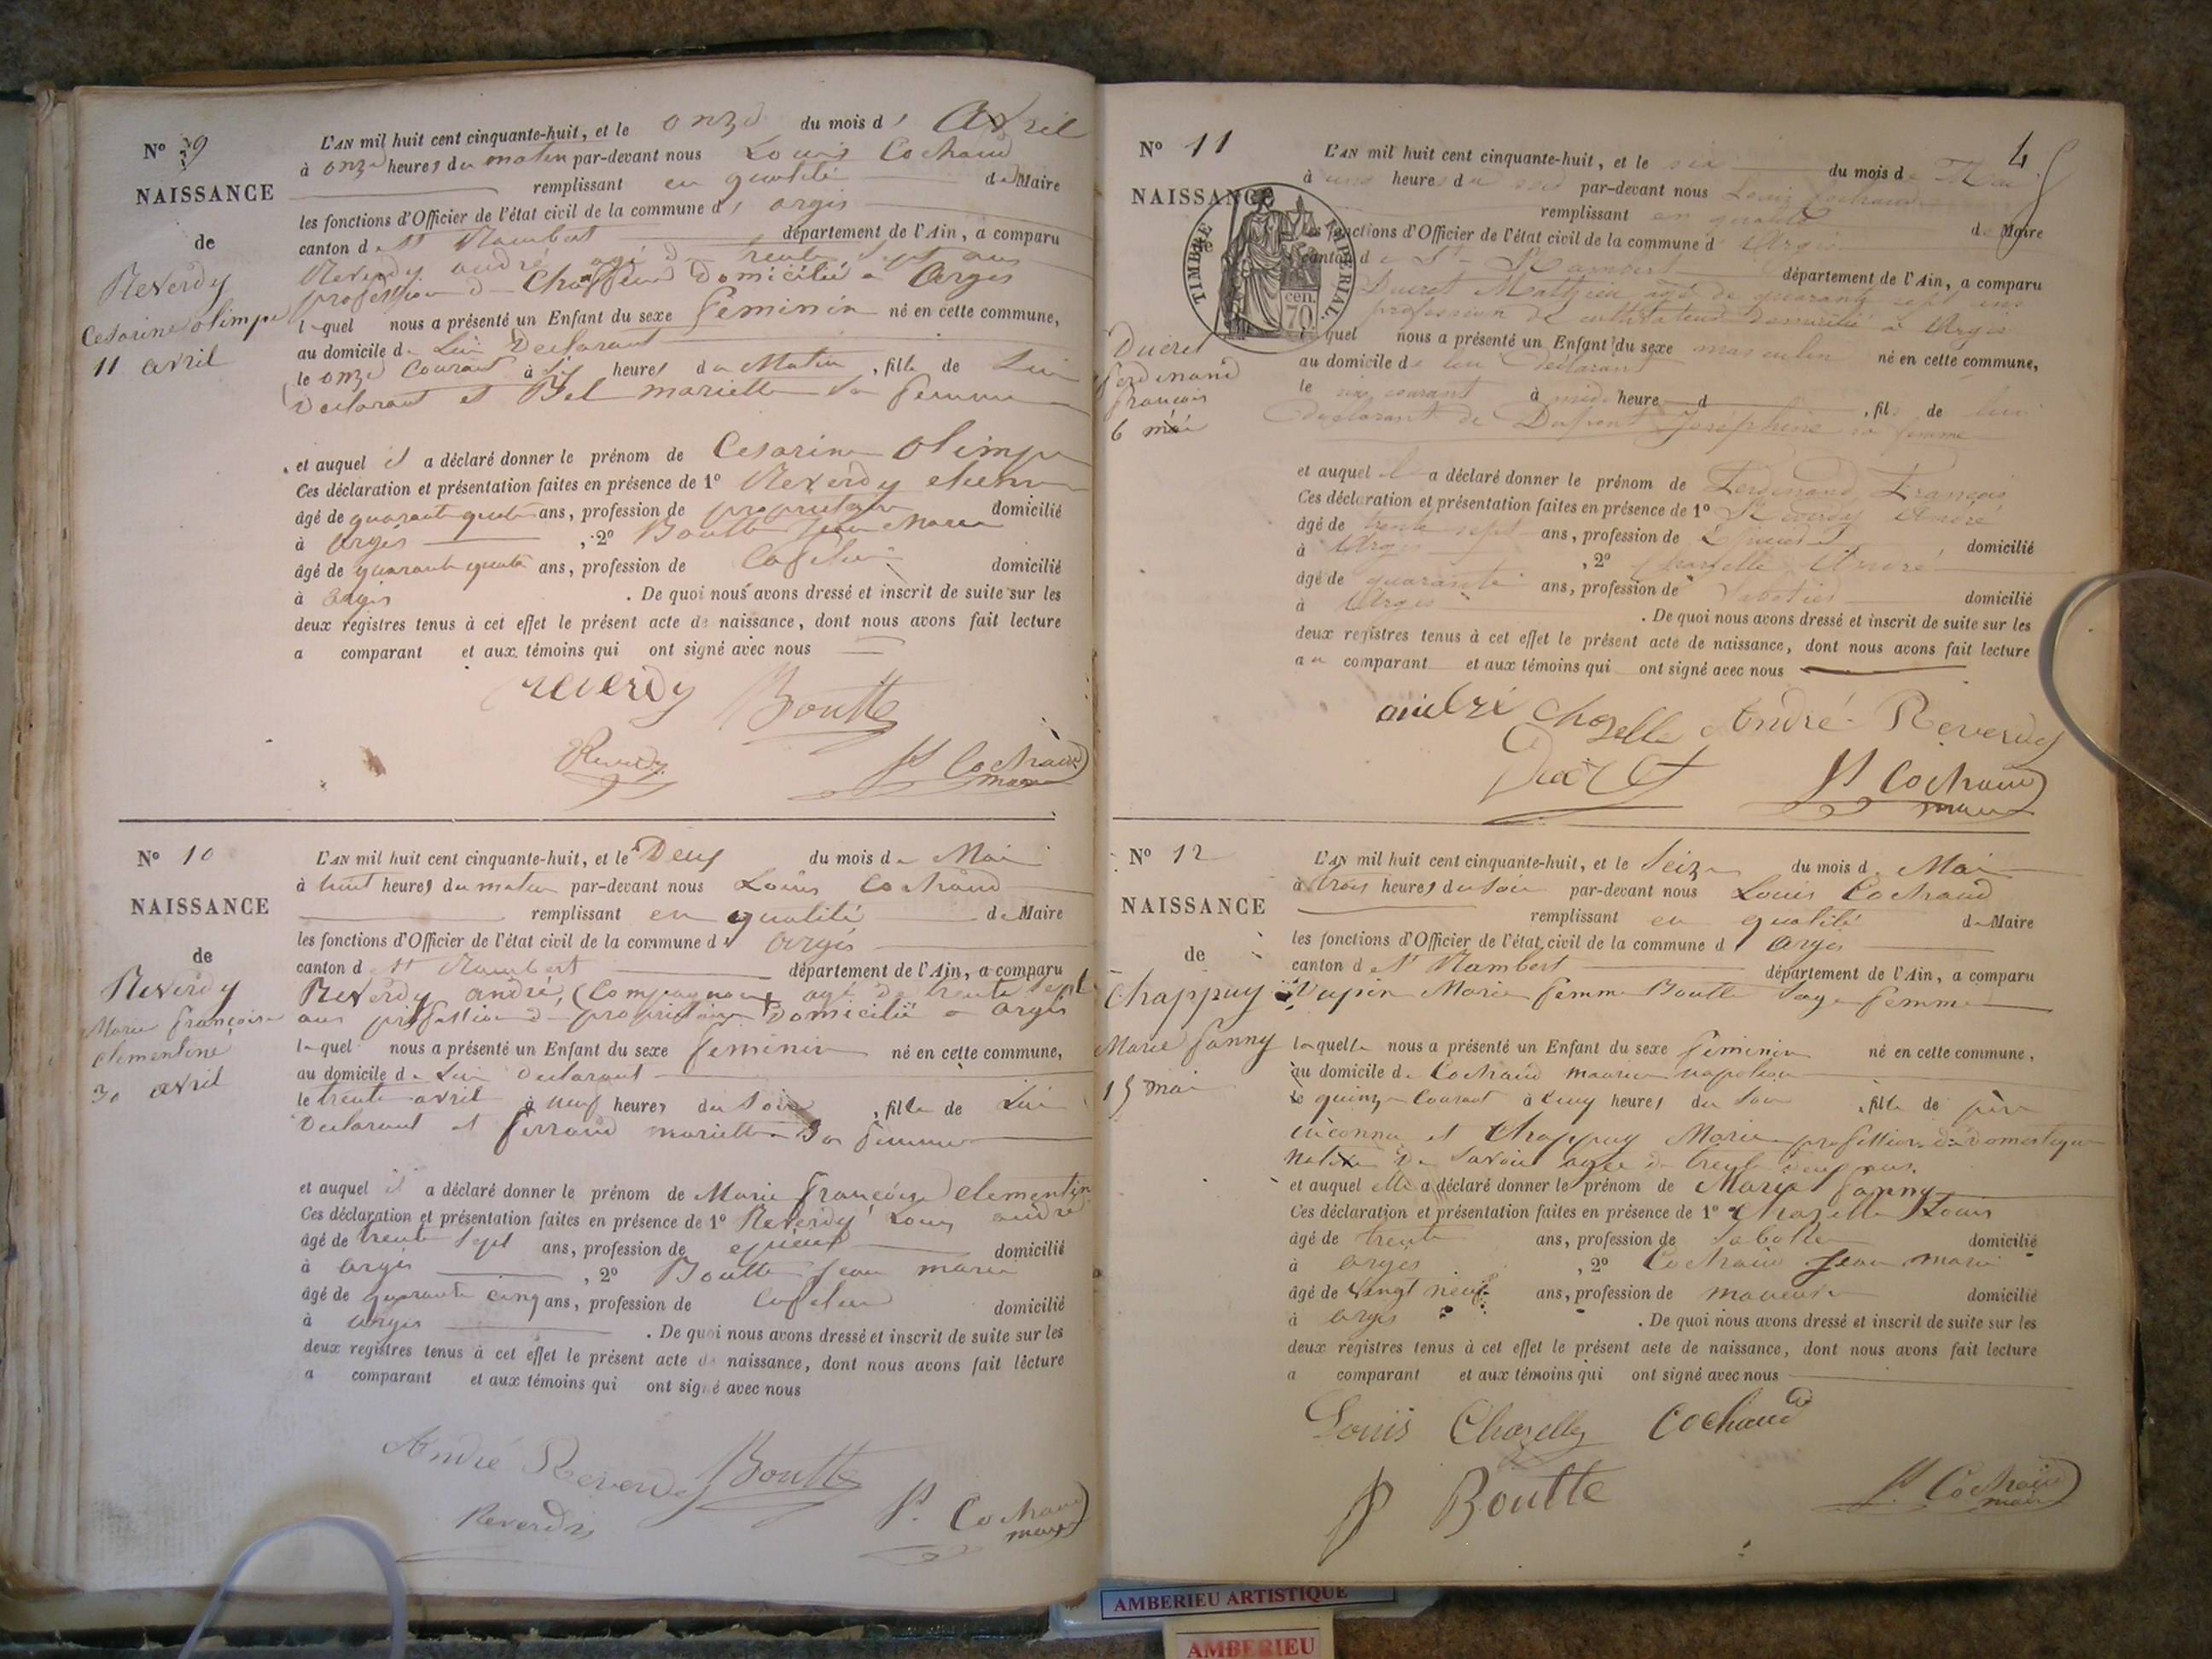 N° 9
NAISSANCE
de
Reverdy
Cesarine olimpe
11 avril
L'AN mil huit cent cinquante-huit, et le onze du mois d' Avril
à onze heures du matin par-devant nous Louis Cochaud
remplissant en qualité de Maire
les fonctions d'Officier de l'état civil de la commune d' argis
canton de St Rambert département de l'Ain, a comparu
Reverdy andré agé de trente sept ans
profession de Domicilié a Argis
lequel nous a présenté un Enfant du sexe feminin né en cette commune,
au domicile de Lui Declarant
le onze Courant à heures du Matin, fille de Lui
Declarant et Bel mariette sa femme
et auquel il a déclaré donner le prénom de Cesarine olimpe
Ces déclaration et présentation faites en présence de 1° Reverdy
âgé de quarante quatre ans, profession de proprietaire domicilié
à Argis, 2° Boutte jean Marie
âgé de quarante quatre ans, profession de domicilié
à argis. De quoi nous avons dressé et inscrit de suite sur les
deux registres tenus à cet effet le présent acte de naissance, dont nous avons fait lecture
a comparant et aux témoins qui ont signé avec nous
reverdy Boutte
Reverdy Cochaud
maire
N° 10
NAISSANCE
de
Reverdy
Marie françoise
clementine
30 avril
L'AN mil huit cent cinquante-huit, et le Deux du mois de Mai
à huit heures du matin par-devant nous Louis Cochaud
remplissant en qualité de Maire
les fonctions d'Officier de l'état civil de la commune d' argis
canton de St Rambert département de l'Ain, a comparu
Reverdy andré, (Compagnon) agé de trente sept
ans profession de proprietaire Domicilié a argis
lequel nous a présenté un Enfant du sexe feminin né en cette commune,
au domicile de Lui Declarant
le trente avril à neuf heures du Soir, fille de Lui
Declarant et ferrand mariette Sa femme
et auquel il a déclaré donner le prénom de Marie françoise clementine
Ces déclaration et présentation faites en présence de 1° Reverdy Louis andré
âgé de trente sept ans, profession de epicier domicilié
à argis, 2° Boutte jean marie
âgé de quarante cinq ans, profession de domicilié
à argis. De quoi nous avons dressé et inscrit de suite sur les
deux registres tenus à cet effet le présent acte de naissance, dont nous avons fait lecture
a comparant et aux témoins qui ont signé avec nous
André Reverdy Boutte
Reverdy Cochaud
maire
4
N° 11
NAISSANCE
de
TIMBRE IMPERIAL
cen. 70
Ducret
ferdinand
françois
6 mai
L'AN mil huit cent cinquante-huit, et le six du mois de Mai
à une heure du soir par-devant nous Louis Cochaud
remplissant en qualité de Maire
les fonctions d'Officier de l'état civil de la commune d' Argis
canton de St Rambert département de l'Ain, a comparu
Ducret Mathieu agé de quarante sept ans
profession de cultivateur domicilié a Argis
lequel nous a présenté un Enfant du sexe masculin né en cette commune,
au domicile de lui déclarant
le six courant à midi heure d, fils de lui
declarant et de Dupont Joséphine sa femme
et auquel il a déclaré donner le prénom de Ferdinand François
Ces déclaration et présentation faites en présence de 1° Reverdy André
âgé de trente sept ans, profession de Epicier domicilié
à Argis, 2° Chazelle André
âgé de quarante ans, profession de Sabotier domicilié
à Argis. De quoi nous avons dressé et inscrit de suite sur les
deux registres tenus à cet effet le présent acte de naissance, dont nous avons fait lecture
au comparant et aux témoins qui ont signé avec nous
andré chazelle André Reverdy
Ducret Cochaud
maire
N° 12
NAISSANCE
de
Chappuy
Marie fanny
15 mai
L'AN mil huit cent cinquante-huit, et le Seize du mois de Mai
à trois heures du soir par-devant nous Louis Cochaud
remplissant en qualité de Maire
les fonctions d'Officier de l'état civil de la commune d' argis
canton de St Rambert département de l'Ain, a comparu
Dupin Marie femme Boutte Sage femme
laquelle nous a présenté un Enfant du sexe feminin né en cette commune,
au domicile de Cochaud maurice napoleon
le quinze Courant à heures du Soir, fille de père
inconnu et Chappuy Marie profession de Domestique
Native de Savoie agée de trente deux ans.
et auquel elle a déclaré donner le prénom de Marie fanny
Ces déclaration et présentation faites en présence de 1° Chazelle Louis
âgé de trente ans, profession de Sabotier domicilié
à argis, 2° Cochaud jean marie
âgé de vingt neuf ans, profession de domicilié
à argis. De quoi nous avons dressé et inscrit de suite sur les
deux registres tenus à cet effet le présent acte de naissance, dont nous avons fait lecture
a comparant et aux témoins qui ont signé avec nous
Louis Chazelle Cochaud
Boutte Cochaud
maire
AMBERIEU ARTISTIQUE
AMBERIEU